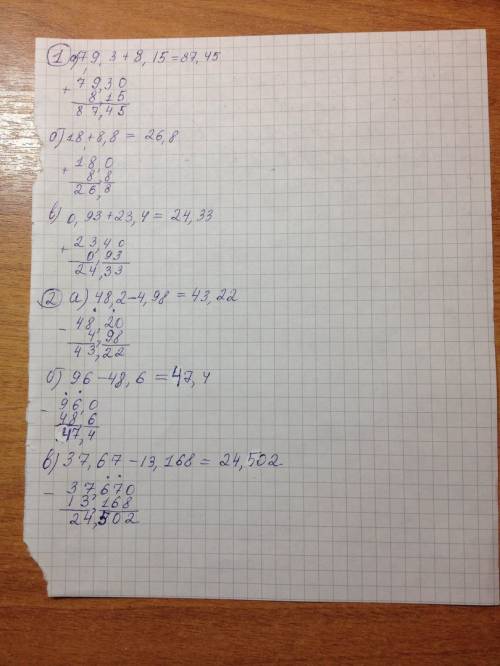 1 а) 79,3+8,15=87,45
+ 79,30
8,15
87,45
б) 18+8,8= 26,8
+ 18,0
8,8
26,8
в) 0,93+23,4= 24,33
+ 23,40
0,93
24,33
2 а) 48,2-4,98=43,22
- 48,20
4,98
43,22
б) 96-48,6=47,4
- 96,0
48,6
47,4
в) 37,67-13,168=24,502
- 37,670
13,168
24,502